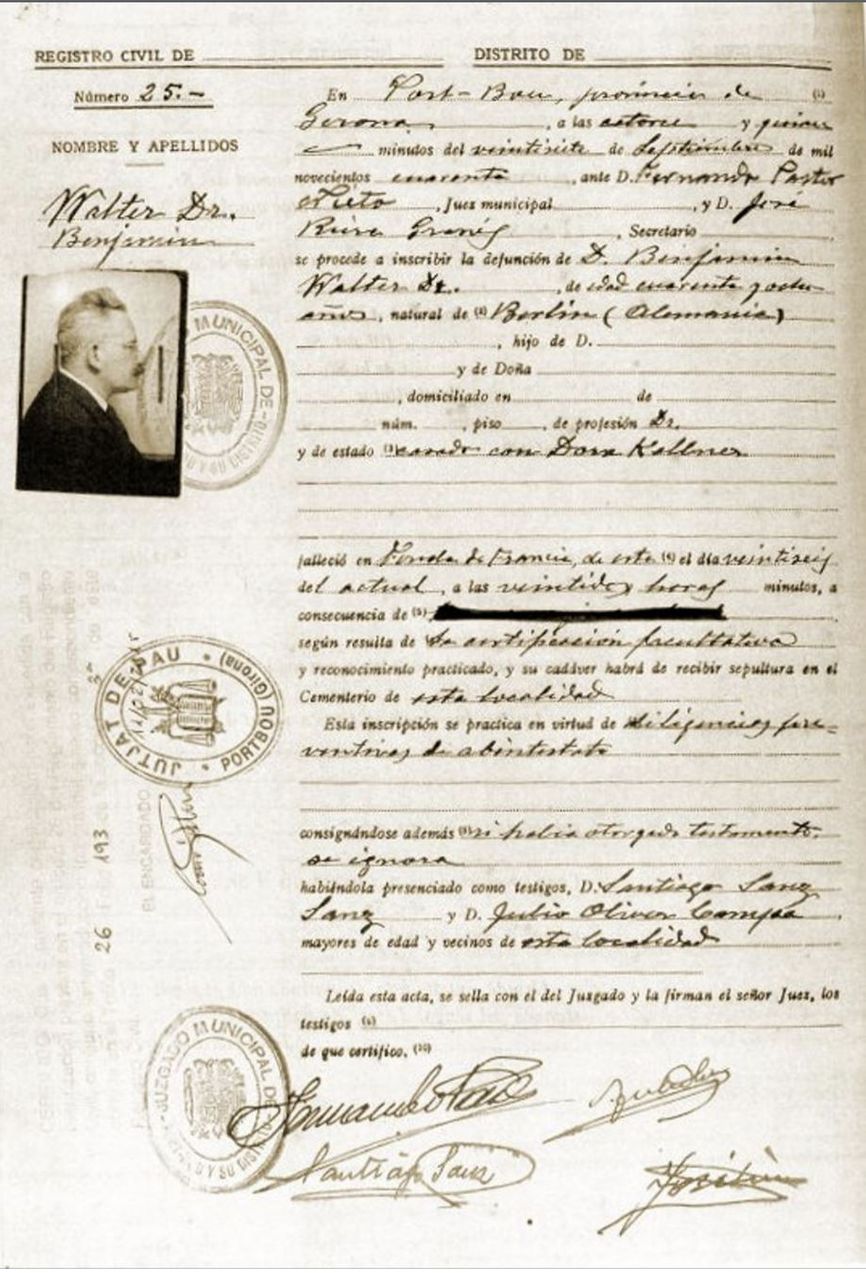 REGISTRO CIVIL DE
DISTRITO DE
Número 25.-
NOMBRE Y APELLIDOS
Walter Dr.
Benjamin
En Port-Bou, provincia de (1)
Gerona, a las catorce y quince
minutos del veintisiete de Septiembre de mil
novecientos cuarenta, ante D. Fernando Pastor
Nieto, Juez municipal, y D. José
, Secretario
se procede a inscribir la defunción de D. Benjamin
Walter Dr., de edad cuarenta y ocho
años, natural de (2) Berlin (Alemania)
, hijo de D.
y de Doña
, domiciliado en de
núm. , piso , de profesión Dr.
y de estado (3) casado con Dora Kellner
falleció en Fonda de Francia, de esta (4) el día veintiseis
del actual, a las veintidos horas minutos, a
consecuencia de (5)
según resulta de la certificación facultativa
y reconocimiento practicado, y su cadáver habrá de recibir sepultura en el
Cementerio de esta localidad
Esta inscripción se practica en virtud de diligencias pre-
ventivas de abintestato
consignándose además (8) si habia otorgado testamento.
se ignora
habiéndola presenciado como testigos, D. Santiago Sanz
Sanz y D. Julio Oliver Campa
mayores de edad y vecinos de esta localidad
Leída esta acta, se sella con el del Juzgado y la firman el señor Juez, los
testigos
de que certifico. (10)
MUNICIPAL DE
Y SU DISTRITO
JUTJAT DE PAU • PORTBOU (Girona) •
EL ENCARGADO
26 193
JUZGADO MUNICIPAL DE
Y SU DISTRITO
Santiago Sanz